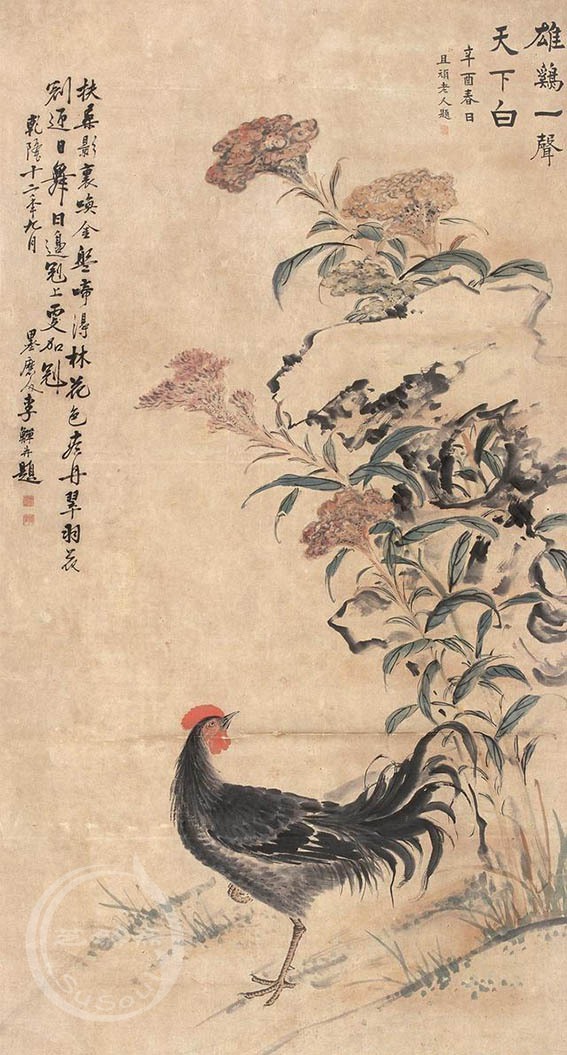 雄鷄一聲
天下白
辛酉春日
且頑老人題
扶桑影裏喚金盤啼得林花色丹翠羽花
冠迎日舞日邊冠上更加冠
乾隆十二年九月 墨磨人李鱓并題
SuSou